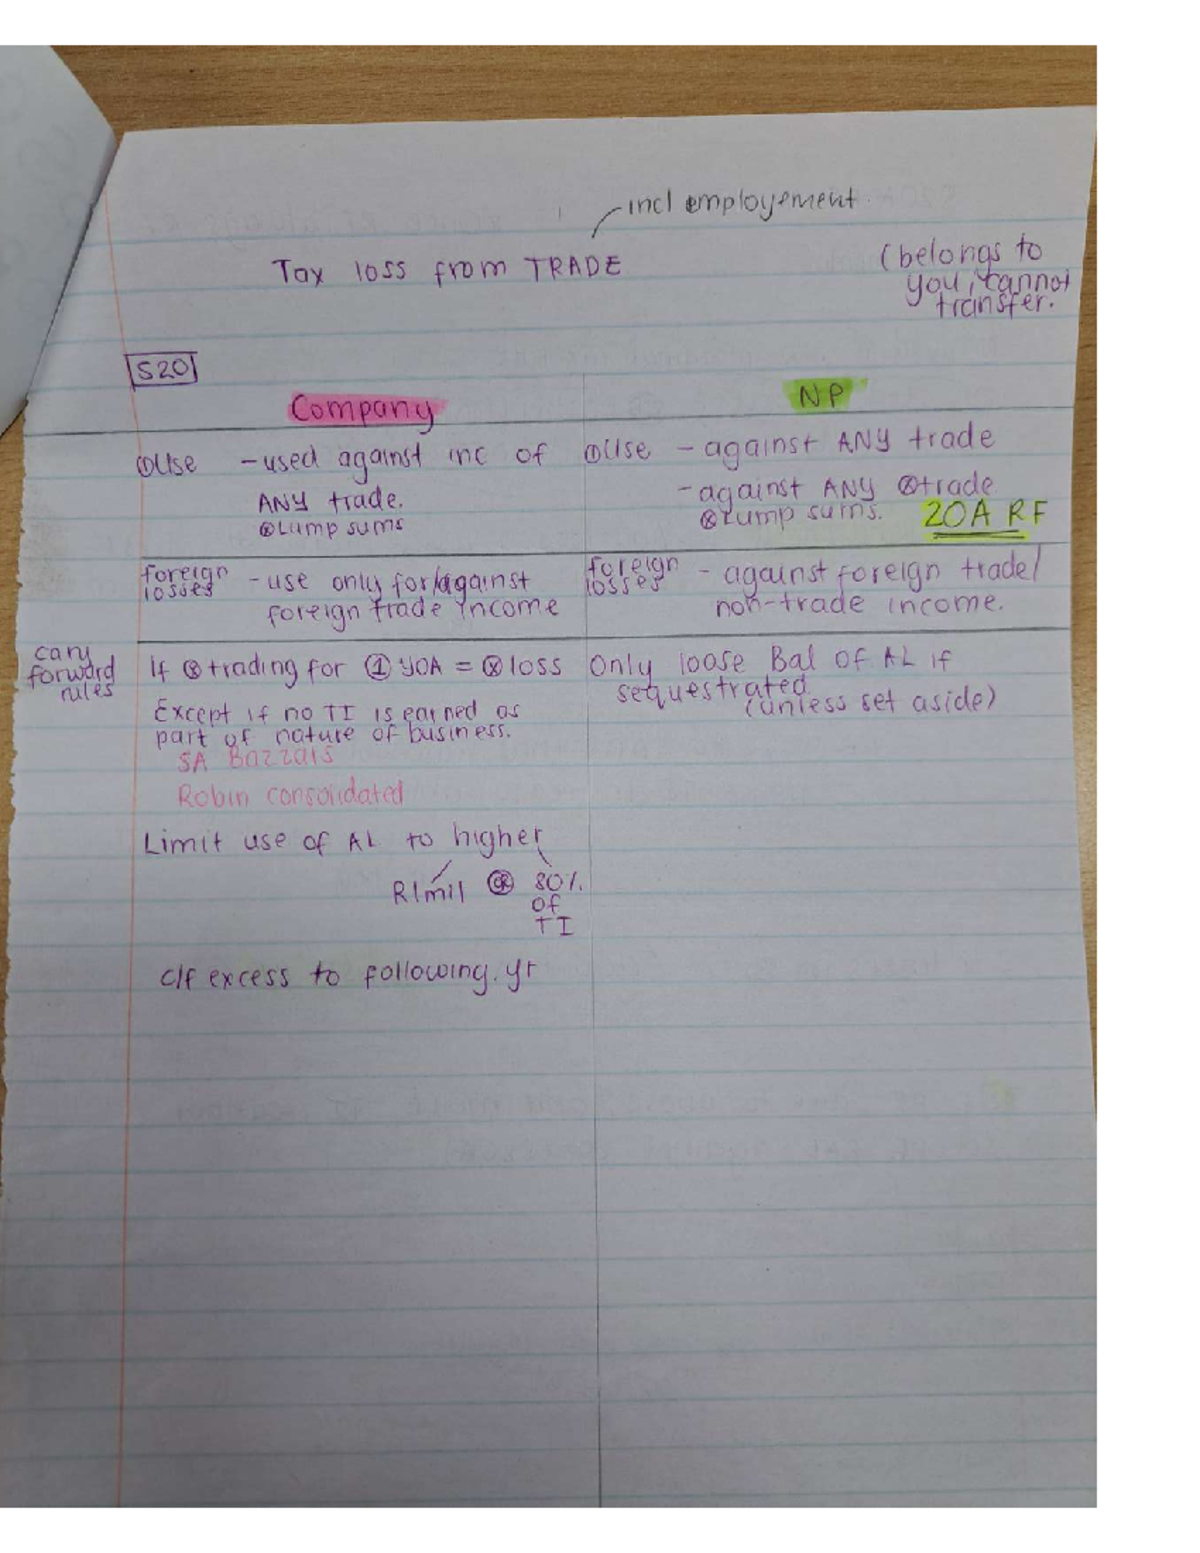 incl employement
Tax loss from TRADE
(belongs to
you, cannot
transfer.
S20
Company
NP
①Use - used against inc of
ANY trade.
⊗Lump sums
①Use - against ANY trade
- against ANY ⊗trade
⊗Lump sums. 20A RF
foreign
losses - use only for/against
foreign trade income
foreign
losses - against foreign trade/
non-trade income.
cary
forward
rules
If ⊗ trading for ① YOA = ⊗ loss
Except if no TI is earned as
part of nature of business.
SA Bazzars
Robin consolidated
Limit use of AL to higher
R1mil OR 80%
of
TI
c/f excess to following. yr
Only loose Bal of AL if
sequestrated
(unless set aside)